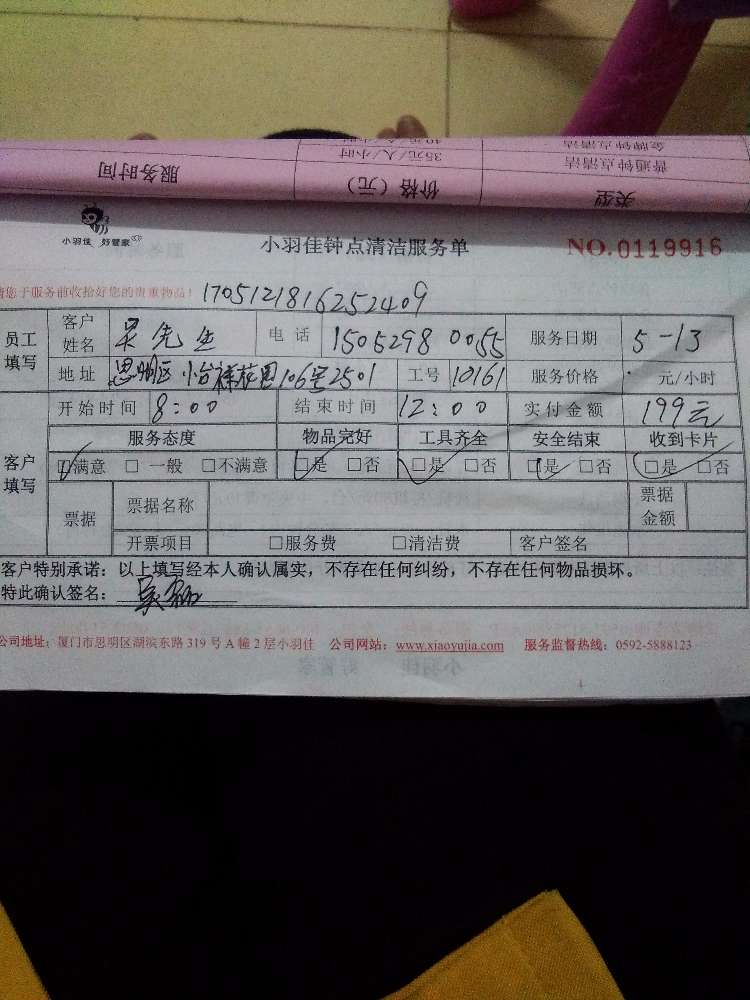 服务时间 价格（元） 类型
35元/人/小时 普通钟点清洁
40元/人/小时 金牌钟点清洁
小羽佳 好管家
小羽佳钟点清洁服务单
NO.0119916
请您于服务前收拾好您的贵重物品！ 1705121816252409
员工填写 客户姓名 吴先生 电话 15052980055 服务日期 5-13
地址 思明区 106号2501 工号 10161 服务价格 元/小时
客户填写 开始时间 8:00 结束时间 12:00 实付金额 199元
服务态度 物品完好 工具齐全 安全结束 收到卡片
☑满意 □一般 □不满意 ☑是 □否 ☑是 □否 ☑是 □否 ☑是 □否
票据 票据名称 票据金额
开票项目 □服务费 □清洁费 客户签名
客户特别承诺：以上填写经本人确认属实，不存在任何纠纷，不存在任何物品损坏。
特此确认签名： 吴
公司地址：厦门市思明区湖滨东路319号A幢2层小羽佳 公司网站：www.xiaoyujia.com 服务监督热线：0592-5888123